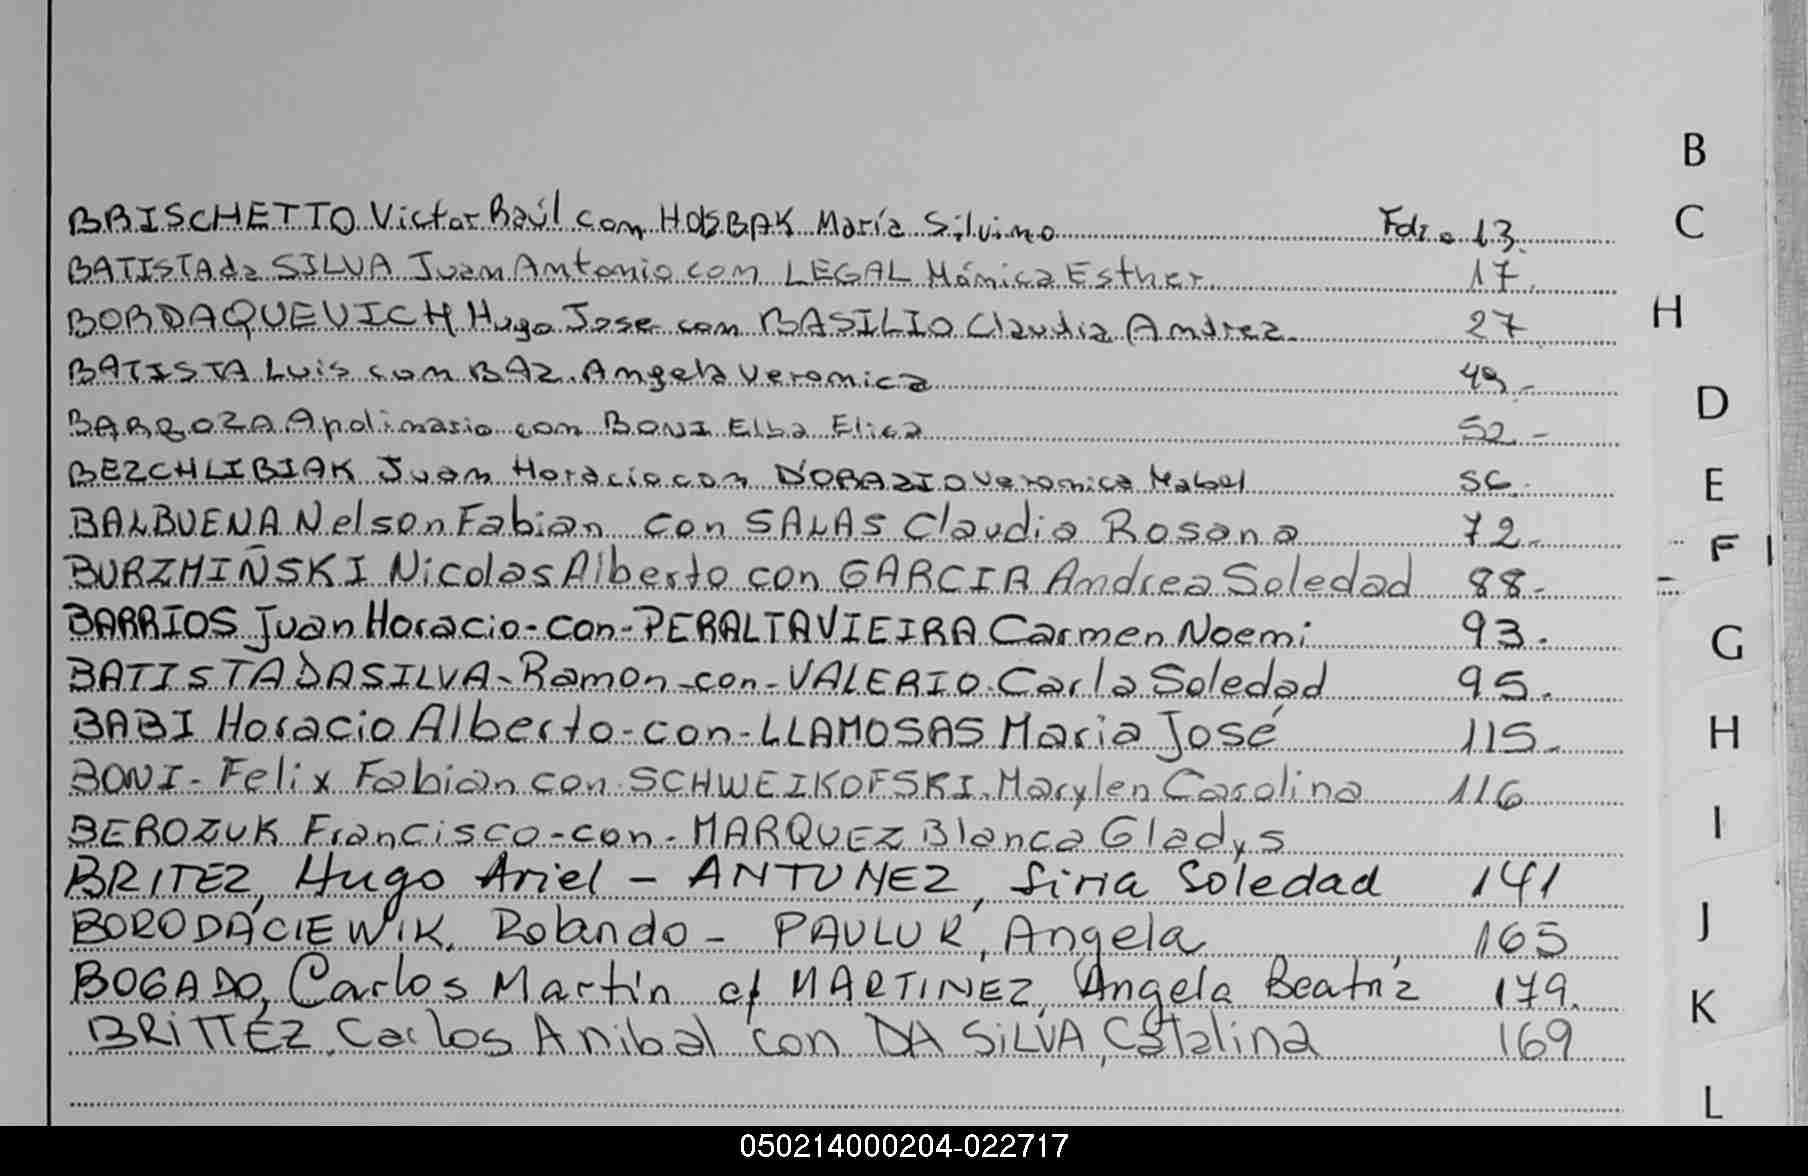 BRISCHETTO Victor Raúl con María Silvina Folio 13.
BATISTA da SILVA Juan Antonio con LEGAL Mónica Esther. 17.
BORDAQUEVICH Hugo Jose con BASILIO Claudia Andrea. 27
BATISTA Luis con BAZ. Angela Veronica 49.-
BARBOZA Apolinario con BONI Elba Elisa 52.-
BEZCHLIBIAK Juan Horacio con D'ORAZIO Veronica Mabel 56.
BALBUENA Nelson Fabian con SALAS Claudia Rosana 72.
BURZMIÑSKI Nicolas Alberto con GARCIA Andrea Soledad 88.-
BARRIOS Juan Horacio-con-PERALTA VIEIRA Carmen Noemi 93.
BATISTA DA SILVA-Ramon-con-VALERIO Carla Soledad 95.
BABI Horacio Alberto-con-LLAMOSAS Maria José 115.
BONI-Felix Fabian con SCHWEIKOFSKI Marylen Carolina 116
BEROZUK Francisco-con-MARQUEZ Blanca Gladys
BRITEZ, Hugo Ariel - ANTUNEZ, Siria Soledad 141
BORODACIEWIK, Rolando - PAULUK, Angela 165
BOGADO, Carlos Martín c/ MARTINEZ, Angela Beatriz 179.
BRITTEZ, Carlos Anibal con DA SILVA, Catalina 169
B
C
H
D
E
F
G
H
I
J
K
L
050214000204-022717